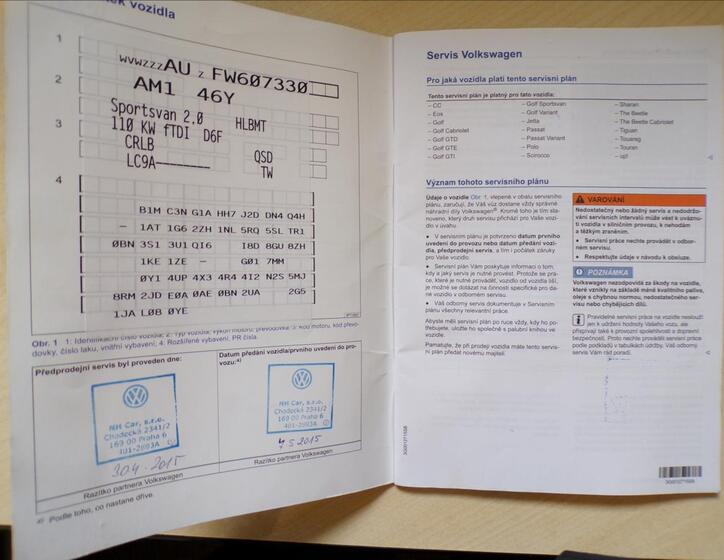 vozidla
1
WVWZZZAU Z FW607330
2
AM1 46Y
Sportsvan 2.0 HLBMT
3
110 KW fTDI D6F
CRLB QSD
LC9A TW
4
B1M C3N G1A HH7 J2D DN4 Q4H
– 1AT 1G6 2ZH 1NL 5RQ 5SL TR1
0BN 3S1 3U1 QI6 I8D 8GU 8ZH
1KE 1ZE – G01 7MM
0Y1 4UP 4X3 4R4 4I2 N2S 5MJ
8RM 2JD E0A 0AE 0BN 2UA 2G5
1JA L0B 0YE
Obr. 1 1: Identifikační číslo vozidla; 2: Typ vozidla, výkon motoru, převodovka; 3: Kód motoru, kód převodovky, číslo laku, vnitřní vybavení; 4: Rozšířené vybavení, PR čísla.
Předprodejní servis byl proveden dne:
NH Car, s.r.o.
Chodecká 2341/2
169 00 Praha 6
401-2893A
30.4.2015
Razítko partnera Volkswagen
Datum předání vozidla/prvního uvedení do provozu:a)
NH Car, s.r.o.
Chodecká 2341/2
169 00 Praha 6
401-2893A
7 5 2015
Razítko partnera Volkswagen
a) Podle toho, co nastane dříve.
Servis Volkswagen
Pro jaká vozidla platí tento servisní plán
Tento servisní plán je platný pro tato vozidla:
– CC
– Eos
– Golf
– Golf Cabriolet
– Golf GTD
– Golf GTE
– Golf GTI
– Golf Sportsvan
– Golf Variant
– Jetta
– Passat
– Passat Variant
– Polo
– Scirocco
– Sharan
– The Beetle
– The Beetle Cabriolet
– Tiguan
– Touareg
– Touran
– up!
Význam tohoto servisního plánu
Údaje o vozidle Obr. 1, vlepené v obalu servisního
plánu, zaručují, že Váš vůz dostane vždy správné
náhradní díly Volkswagen®. Kromě toho je tím sta-
noveno, který druh servisu přichází pro Vaše vozi-
dlo v úvahu.
● V servisním plánu je potvrzeno datum prvního
uvedení do provozu nebo datum předání vozi-
dla, předprodejní servis, a tím i počátek záruky
pro Vaše vozidlo.
● Servisní plán Vám poskytuje informaci o tom,
kdy a jaký servis je nutné provést. Protože se prá-
ce, které je nutné provádět, vozidlo od vozidla liší,
je možné se dotázat na činnosti specifické pro da-
né vozidlo v odborném servisu.
● Váš odborný servis dokumentuje v Servisním
plánu všechny relevantní práce.
Abyste měli servisní plán po ruce vždy, kdy ho po-
třebujete, uložte ho společně s palubní knihou ve
vozidle.
Pamatujte, že při prodeji vozidla máte tento servis-
ní plán předat novému majiteli.
VAROVÁNÍ
Nedostatečný nebo žádný servis a nedodržo-
vání servisních intervalů může vést k uváznu-
tí vozidla v silničním provozu, k nehodám
a těžkým zraněním.
● Servisní práce nechte provádět v odbor-
ném servisu.
● Respektujte údaje v návodu k obsluze.
POZNÁMKA
Volkswagen nezodpovídá za škody na vozidle,
které vznikly na základě méně kvalitního paliva,
oleje s chybnou normou, nedostatečného ser-
visu nebo chybějících dílů.
Pravidelné servisní práce na vozidle neslouží
jen k udržení hodnoty Vašeho vozu, ale
přispívají také k provozní spolehlivosti a dopravní
bezpečnosti. Proto nechte provádět servisní práce
podle podkladů v tabulkách údržby. Váš odborný
servis Vám rád poradí.
3G0012715SB
3G0012715SB